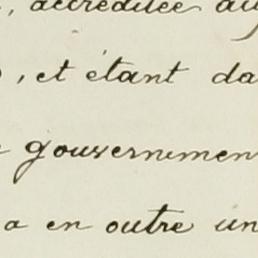 , accréditée au
, et étant da
gouvernemen
a en outre un